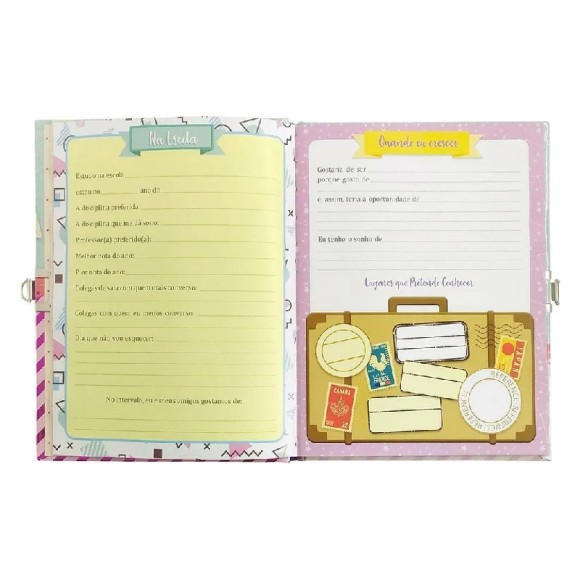 Na Escola
Estudo na escola
estou no ano do
A disciplina preferida
A disciplina que me dá sono:
Professor(a) preferido(a):
Melhor nota do ano:
Pior nota do ano:
Colegas de sala com quem mais converso:
Colegas com quem eu menos converso:
Dia que não vou esquecer:
No intervalo, eu e meus amigos gostamos de:
Quando eu crescer
Gostaria de ser
porque gosto de
e, assim, teria a oportunidade de
Eu tenho o sonho de
Lugares que Pretendo Conhecer
FRANCE
CANADA
JAPAN